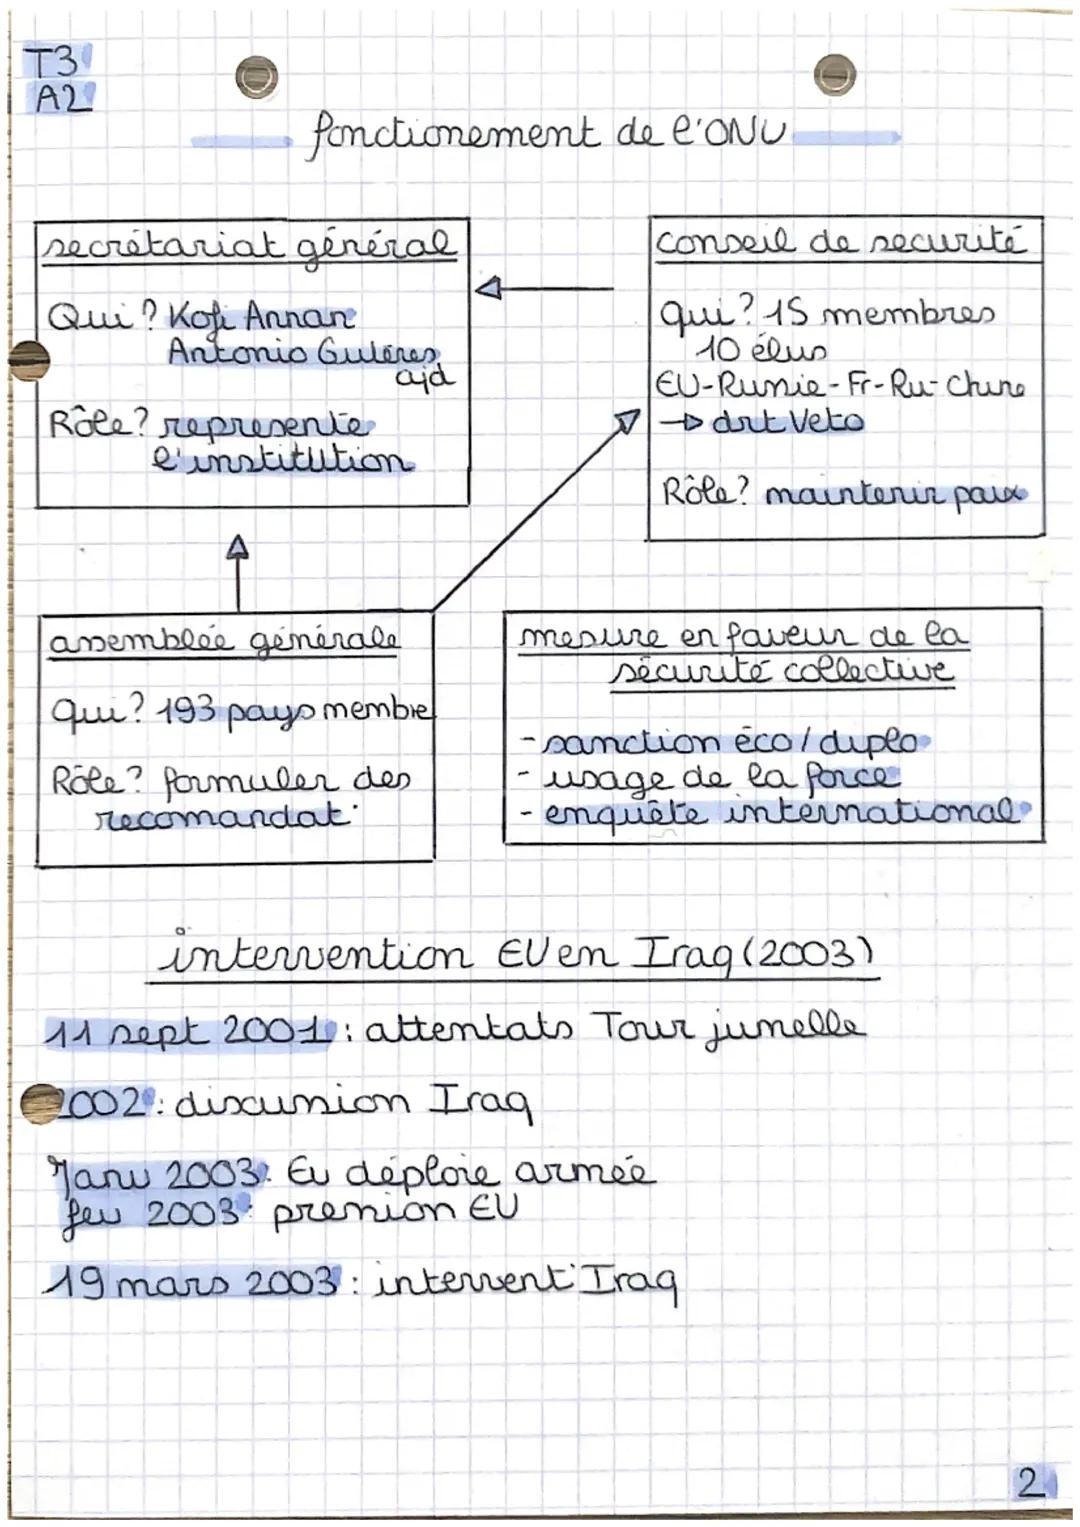 T3
A2
fonctionement de l'ONU
secrétariat général
Qui? Kofi Annan
Antonio Gutéres
ajd
Rôle? represente
l'institution
conseil de securité
qui? 15 membres
10 élus
EU-Russie-Fr-Ru-Chine
→ drt Veto
Rôle? maintenir paix
assemblée générale
qui? 193 pays membre
Rôle? formuler des
recomandat°
mesure en faveur de la
sécurité collective
- sanction éco/diplo
- usage de la force
- enquête international
intervention EU en Iraq (2003)
11 sept 2001: attentats Tour jumelle
2002: discussion Iraq
Janv 2003: Eu déploie armée
fev 2003: pression EU
19 mars 2003: intervent° Iraq
2